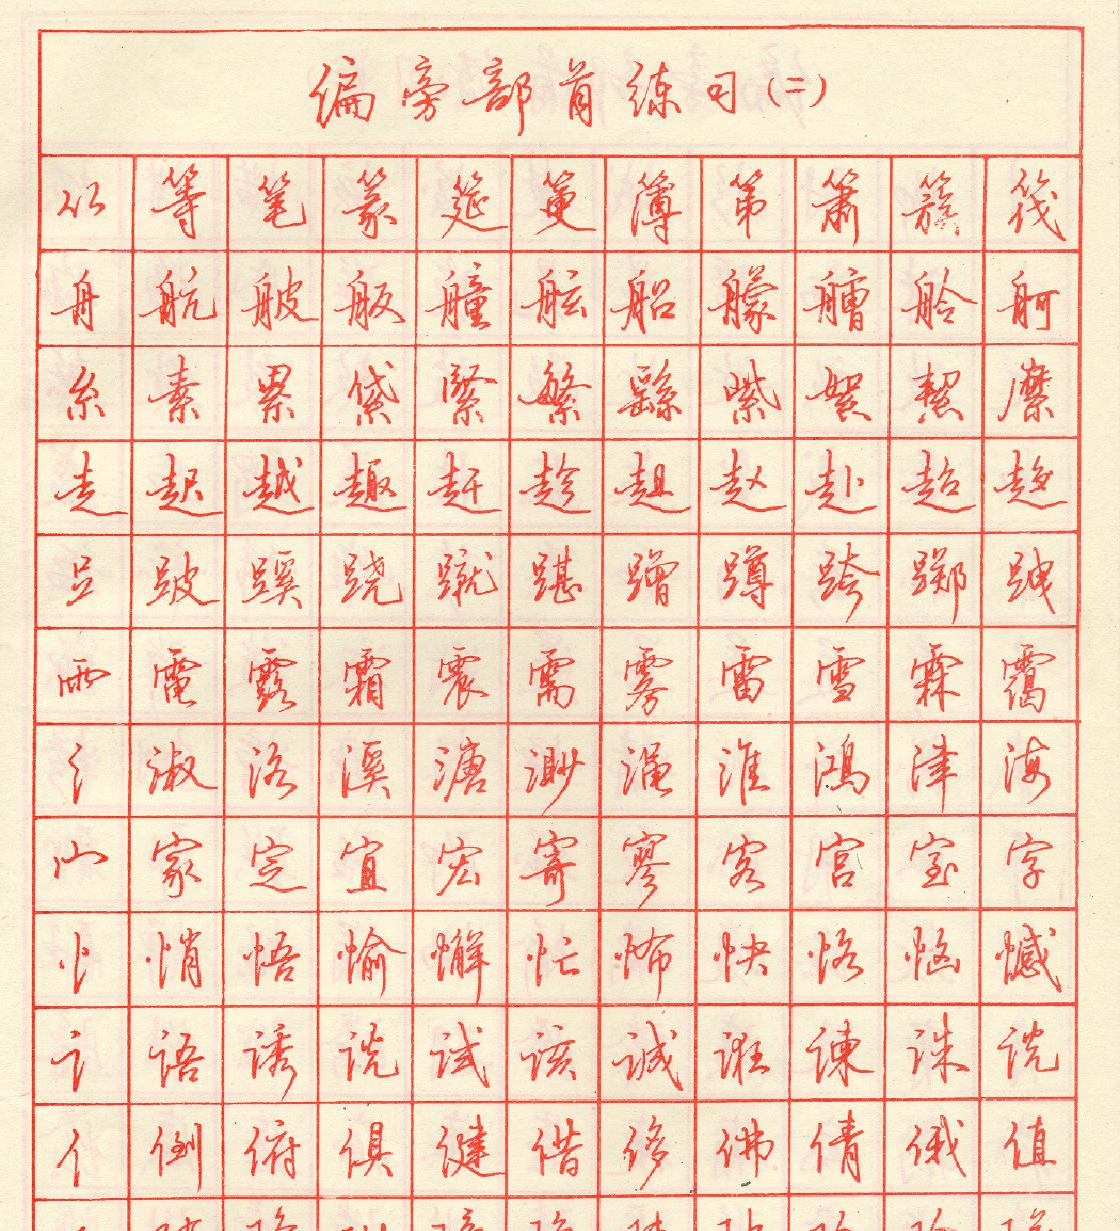 偏旁部首练习(二)
⺮ 等 笔 篆 筵 篓 簿 第 箫 簇 筏
舟 航 艘 舨 艟 舷 船 艨 艚 舱 舸
糸 素 累 袋 紧 繁 繇 紫 絮 絜 縻
走 起 越 趣 赶 趁 趄 赵 赴 超 趋
𧾷 跛 蹊 跷 蹴 踸 蹭 蹲 跨 踯 跋
雨 電 露 霜 震 需 雾 雷 雪 霖 霭
氵 淑 洛 溪 溏 渺 渑 淮 鸿 津 海
宀 家 定 宜 宏 寄 寥 客 宫 宝 字
忄 悄 悟 愉 懈 忙 怖 快 恪 恼 憾
讠 语 诱 说 试 该 诚 诳 谏 诛 说
亻 倒 俯 俱 健 借 修 佛 倩 俄 值